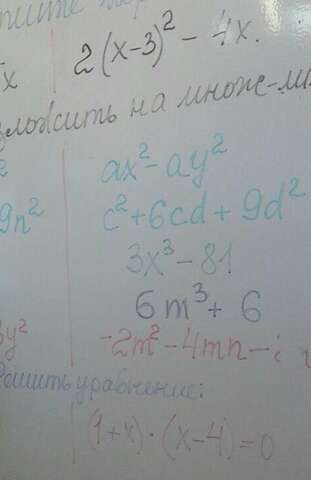 2(x-3)² - 4x.
на множе-
ax² - ay²
9n² c² + 6cd + 9d²
3x³ - 81
6m³ + 6
y² -2m² - 4mn -
Решить уравнение:
(1+x)·(x-4)=0